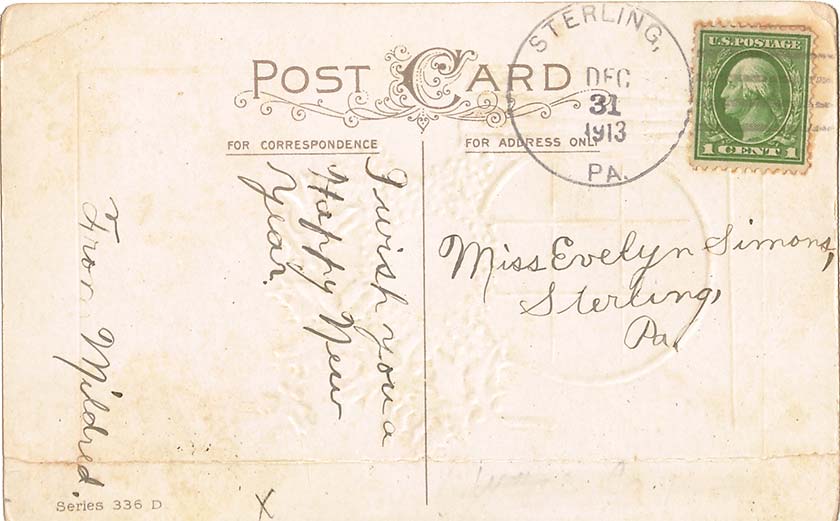 POST CARD
FOR CORRESPONDENCE
FOR ADDRESS ONLY
STERLING,
DEC
31
1913
PA.
U.S. POSTAGE
1 CENT 1
I wish you a
Happy New
Year.
From Mildred.
Miss Evelyn Simons,
Sterling,
Pa.
Series 336 D
X